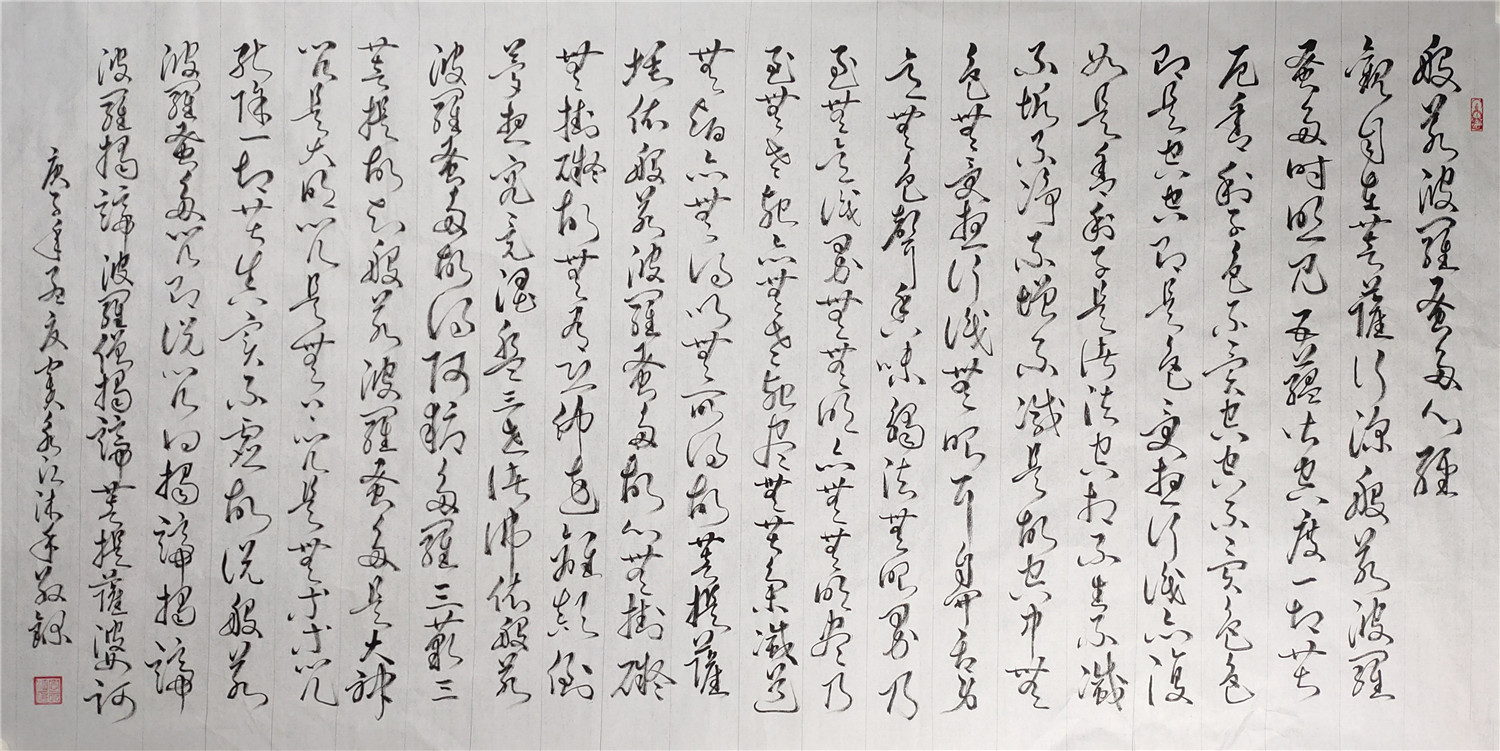 般若波羅蜜多心經
觀自在菩薩行深般若波羅
蜜多時照見五蘊皆空度一切苦
厄舍利子色不異空空不異色色
即是空空即是色受想行識亦復
如是舍利子是諸法空相不生不滅
不垢不淨不增不減是故空中無
色無受想行識無眼耳鼻舌身
意無色聲香味觸法無眼界乃
至無意識界無無明亦無無明盡乃
至無老死亦無老死盡無苦集滅道
無智亦無得以無所得故菩提薩
埵依般若波羅蜜多故心無掛礙
無掛礙故無有恐怖遠離顛倒
夢想究竟涅槃三世諸佛依般若
波羅蜜多故得阿耨多羅三藐三
菩提故知般若波羅蜜多是大神
咒是大明咒是無上咒是無等等咒
能除一切苦真實不虛故說般若
波羅蜜多咒即說咒曰揭諦揭諦
波羅揭諦波羅僧揭諦菩提薩婆訶
庚子年孟夏沐手敬錄